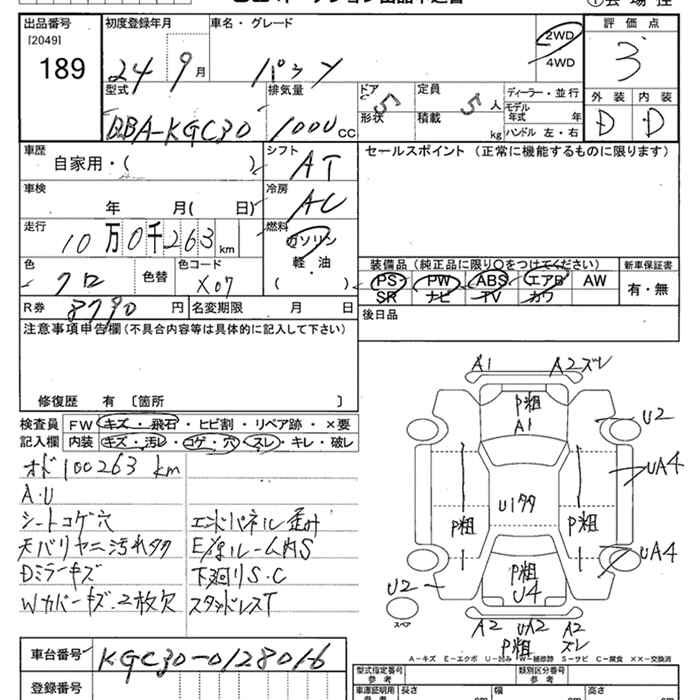 出品番号 初度登録年月 車名・グレード 2WD 評価点
[2049] 4WD 3
189 24 9月 パッソ
型式 排気量 ドア 5 定員 5人 ディーラー・並行 外装 内装
モデル年式 年
BBA-KGC30 1000cc 形状 積載 kg ハンドル 左・右 D D
車歴 シフト セールスポイント (正常に機能するものに限ります)
自家用・( ) AT
車検 冷房
年 月( 日) AC
走行 燃料
10万0千263km ガソリン
軽・油
色 色替 色コード ( ) 装備品 (純正品に限り○をつけてください) 新車保証書
クロ X07 PS PW ABS エアB AW 有・無
SR ナビ TV カワ
R券 8790円 名変期限 月 日 後日品
注意事項申告欄(不具合内容等は具体的に記入して下さい)
修復歴 有〔箇所 〕
検査員 FW キズ・飛石・ヒビ割・リペア跡・×要
記入欄 内装 キズ・汚レ・コゲ・穴・スレ・キレ・破レ
オド100263km
A・U
シートコゲ穴 エンドパネル歪み
天バリヤニ汚れタク E/gルーム内S
Dミラーキズ 下廻りS.C
Wカバーキズ.2枚欠 スタッドレスT
A1 A2ズレ
P粗
A1
U2
UA4
U1タタ
P粗 P粗
UA4
P粗
U4
U2
スペア
A2 UA2 A2
P粗 ズレ
A-キズ E-エクボ U-凹み W-補修跡 S-サビ C-腐食 ××-交換済
車台番号 KGC30-0128016
登録番号
型式指定番号 参考 類別区分番号 参考
車庫証明用 参考 長さ cm 幅 cm 高さ cm